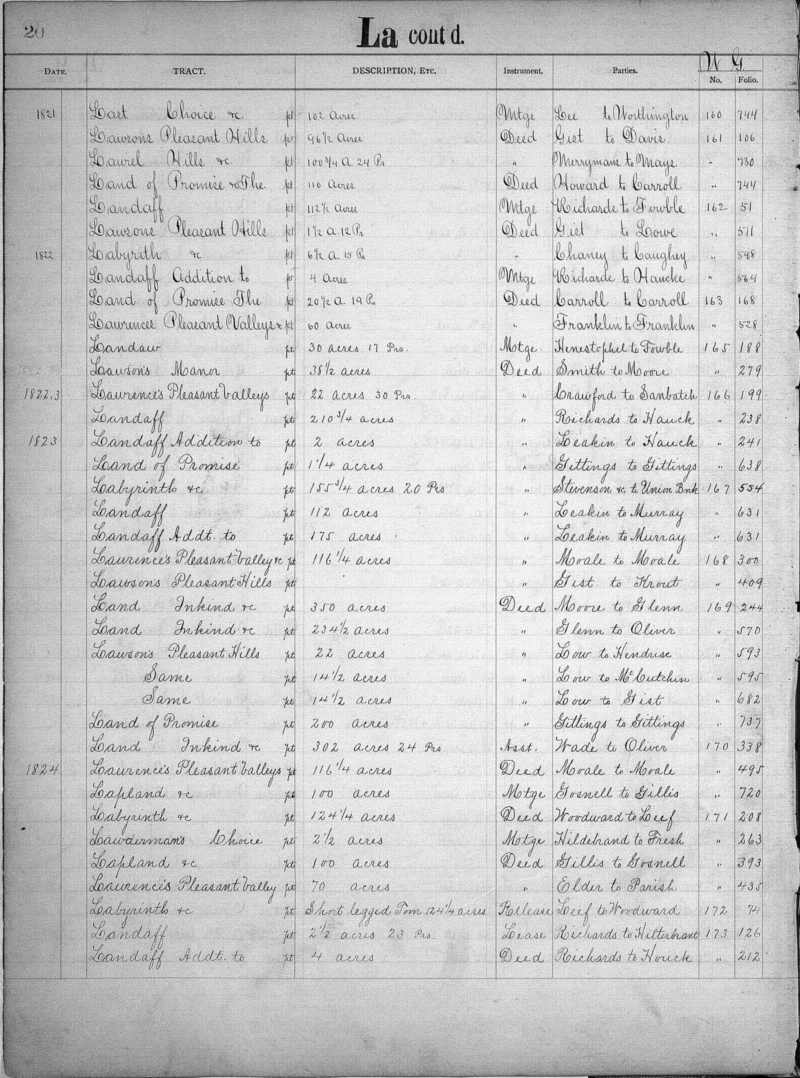 20
La cont d.
W G
DATE. TRACT. DESCRIPTION, ETC. Instrument. Parties. No. Folio.
1821 Last Choice &c pt 102 Acres Mtge Lee to Worthington 160 744
Lawsons Pleasant Hills pt 96 1/2 Acres Deed Gist to Davis 161 106
Laurel Hills &c pt 100 3/4 A 24 Ps " Merrymans to Mays " 730
Land of Promise &c The pt 110 Acres Deed Howard to Carroll " 744
Landaff pt 112 1/2 Acres Mtge Richards to Fowble 162 51
Lawsons Pleasant Hills pt 1 1/2 A 12 Ps Deed Gist to Lowe " 511
1822 Labyrith &c pt 6 1/2 A 15 Ps " Chaney to Caughey " 548
Landaff Addition to pt 4 Acres Mtge Richards to Haucke " 564
Land of Promise The pt 20 1/2 A. 19 Ps Deed Carroll to Carroll 163 168
Lawrences Pleasant Valleys & pt 60 Acres " Franklin to Franklin " 528
Landaw pt 30 acres 17 Prs. Mtge Henestophel to Fowble 165 188
Lawson's Manor pt 38 1/2 acres Deed Smith to Moore " 279
1822.3 Lawrence's Pleasant Valleys pt 22 acres 30 Prs. " Crawford to Sanbatch 166 199
Landaff pt 210 3/4 acres " Richards to Hauck " 238
1823 Landaff Addition to pt 2 acres " Leakin to Hauck " 241
Land of Promise pt 1 1/4 acres " Gittings to Gittings " 638
Labyrinth &c pt 155 3/4 acres 20 Prs " Stevenson &c to Union Bnk 167 554
Landaff pt 112 acres " Leakin to Murray " 631
Landaff Addt. to pt 175 acres " Leakin to Murray " 631
Laurence's Pleasant Valley &c pt 116 1/4 acres " Moale to Moale 168 300
Lawson's Pleasant Hills pt " Gist to Krout " 409
Land Inkind &c pt 350 acres Deed Moore to Glenn 169 244
Land Inkind &c pt 234 1/2 acres " Glenn to Oliver " 570
Lawson's Pleasant Hills pt 22 acres " Low to Hendrise " 593
Same pt 14 1/2 acres " Low to McCutchin " 595
Same pt 14 1/2 acres " Low to Gist " 682
Land of Promise pt 200 acres " Gittings to Gittings " 737
Land Inkind &c pt 302 acres 24 Prs Asst. Wade to Oliver 170 338
1824 Laurence's Pleasant Valleys pt 116 1/4 acres Deed Moale to Moale " 495
Lapland &c pt 100 acres Mtge Gosnell to Gillis " 720
Labyrinth &c pt 124 1/4 acres Deed Woodward to Leef 171 208
Lawderman's Choice pt 2 1/2 acres Mtge Hildebrand to Fresh " 263
Lapland &c pt 100 acres Deed Gillis to Gosnell " 393
Laurence's Pleasant Valley pt 70 acres " Elder to Parish " 435
Labyrinth &c pt Short legged Tom 124 1/4 acres Release Leef to Woodward 172 74
Landaff pt 2 1/2 acres 23 Prs. Lease Richards to Hilterbrant 173 126
Landaff Addt. to pt 4 acres Deed Richards to Houck " 212